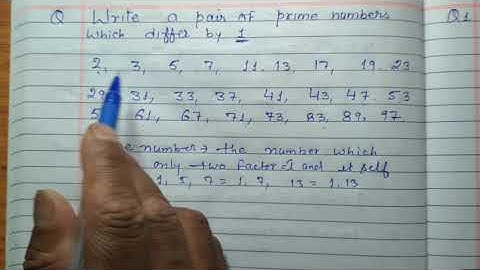 Q Write a pair of prime numbers Q1
which differ by 1
2, 3, 5, 7, 11. 13, 17, 19. 23
29 31, 33, 37, 41, 43, 47. 53
5 61, 67, 71, 73, 83, 89, 97
e number → the number which
only two factor = 1 and it self
1, 5, 7 = 1, 7, 13 = 1, 13